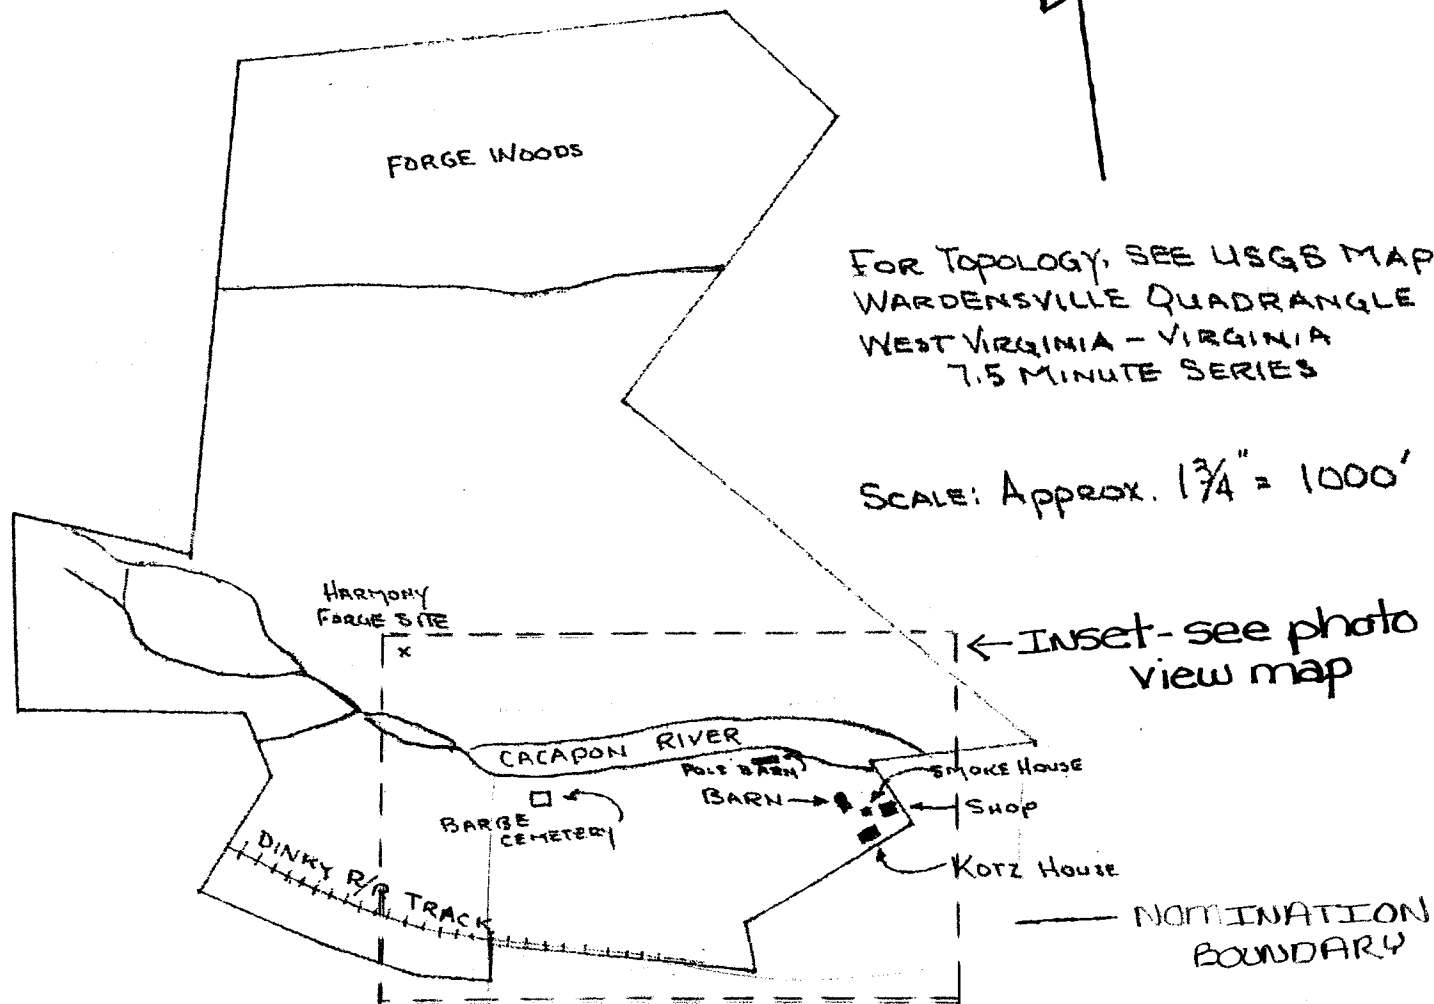 FORGE WOODS
FOR TOPOLOGY, SEE USGS MAP
WARDENSVILLE QUADRANGLE
WEST VIRGINIA - VIRGINIA
7.5 MINUTE SERIES
SCALE: APPROX. 1 3/4" = 1000'
HARMONY
FORGE SITE
x
← INSET - see photo
view map
CACAPON RIVER
POLE BARN
SMOKE HOUSE
BARN
SHOP
BARBE
CEMETERY
KOTZ HOUSE
DINKY R/R TRACK
NOMINATION
BOUNDARY